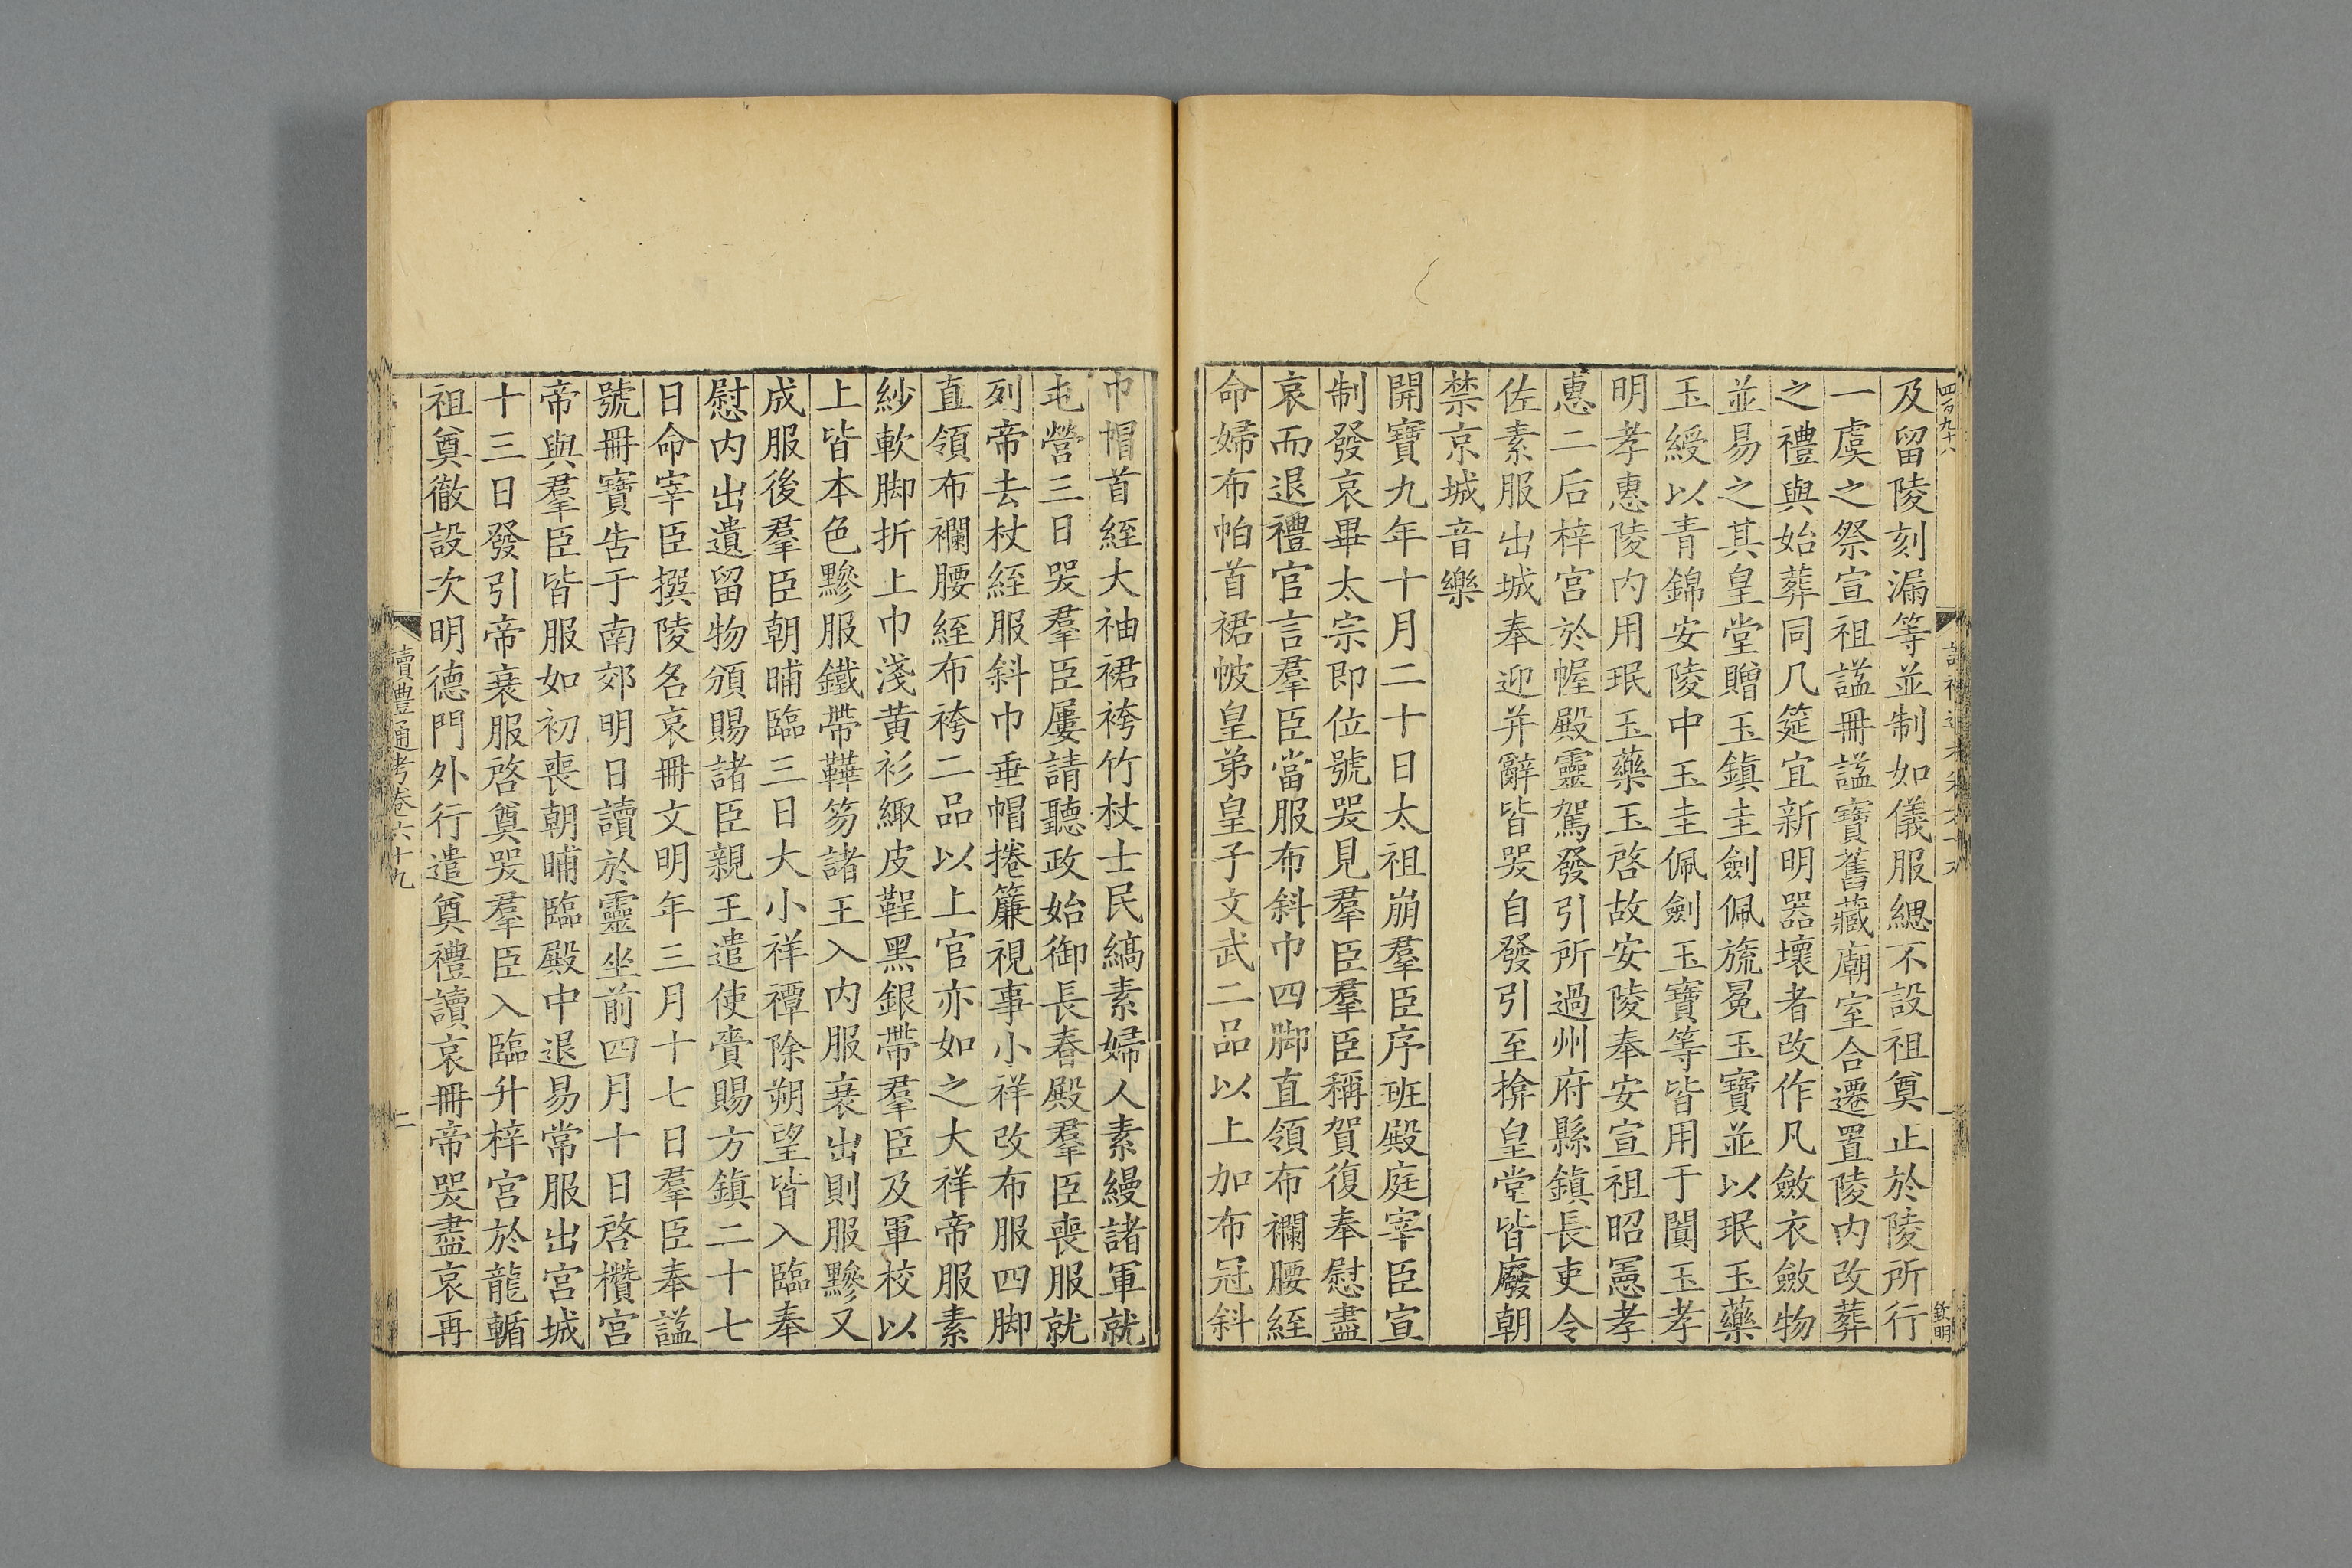 四百九十八
及留陵刻漏等並制如儀服緦不設祖奠止於陵所行
一虞之祭宣祖諡冊諡寶舊藏廟室合遷置陵內改葬
之禮與始葬同几筵宜新明器壞者改作凡斂衣斂物
並易之其皇堂贈玉鎮圭劍佩旒冕玉寶並以珉玉藥
玉綬以青錦安陵中玉圭佩劍玉寶等皆用于闐玉孝
明孝惠陵內用珉玉藥玉啓故安陵奉安宣祖昭憲孝
惠二后梓宮於幄殿靈駕發引所過州府縣鎮長吏令
佐素服出城奉迎并辭皆哭自發引至揜皇堂皆廢朝
禁京城音樂
開寶九年十月二十日太祖崩羣臣序班殿庭宰臣宣
制發哀畢太宗即位號哭見羣臣羣臣稱賀復奉慰盡
哀而退禮官言羣臣當服布斜巾四脚直領布襴腰絰
命婦布帕首裙帔皇弟皇子文武二品以上加布冠斜
巾帽首絰大袖裙袴竹杖士民縞素婦人素縵諸軍就
屯營三日哭羣臣屢請聽政始御長春殿羣臣喪服就
列帝去杖絰服斜巾垂帽捲簾視事小祥改布服四脚
直領布襴腰絰布袴二品以上官亦如之大祥帝服素
紗軟脚折上巾淺黃衫緅皮鞓黑銀帶羣臣及軍校以
上皆本色黲服鐵帶鞾笏諸王入內服衰出則服黲又
成服後羣臣朝晡臨三日大小祥禫除朔望皆入臨奉
慰內出遺留物頒賜諸臣親王遣使賫賜方鎮二十七
日命宰臣撰陵名哀冊文明年三月十七日羣臣奉諡
號冊寶告于南郊明日讀於靈坐前四月十日啓欑宮
帝與羣臣皆服如初喪朝晡臨殿中退易常服出宮城
十三日發引帝衰服啓奠哭羣臣入臨升梓宮於龍輴
祖奠徹設次明德門外行遣奠禮讀哀冊帝哭盡哀再
讀禮通考卷六十九
二